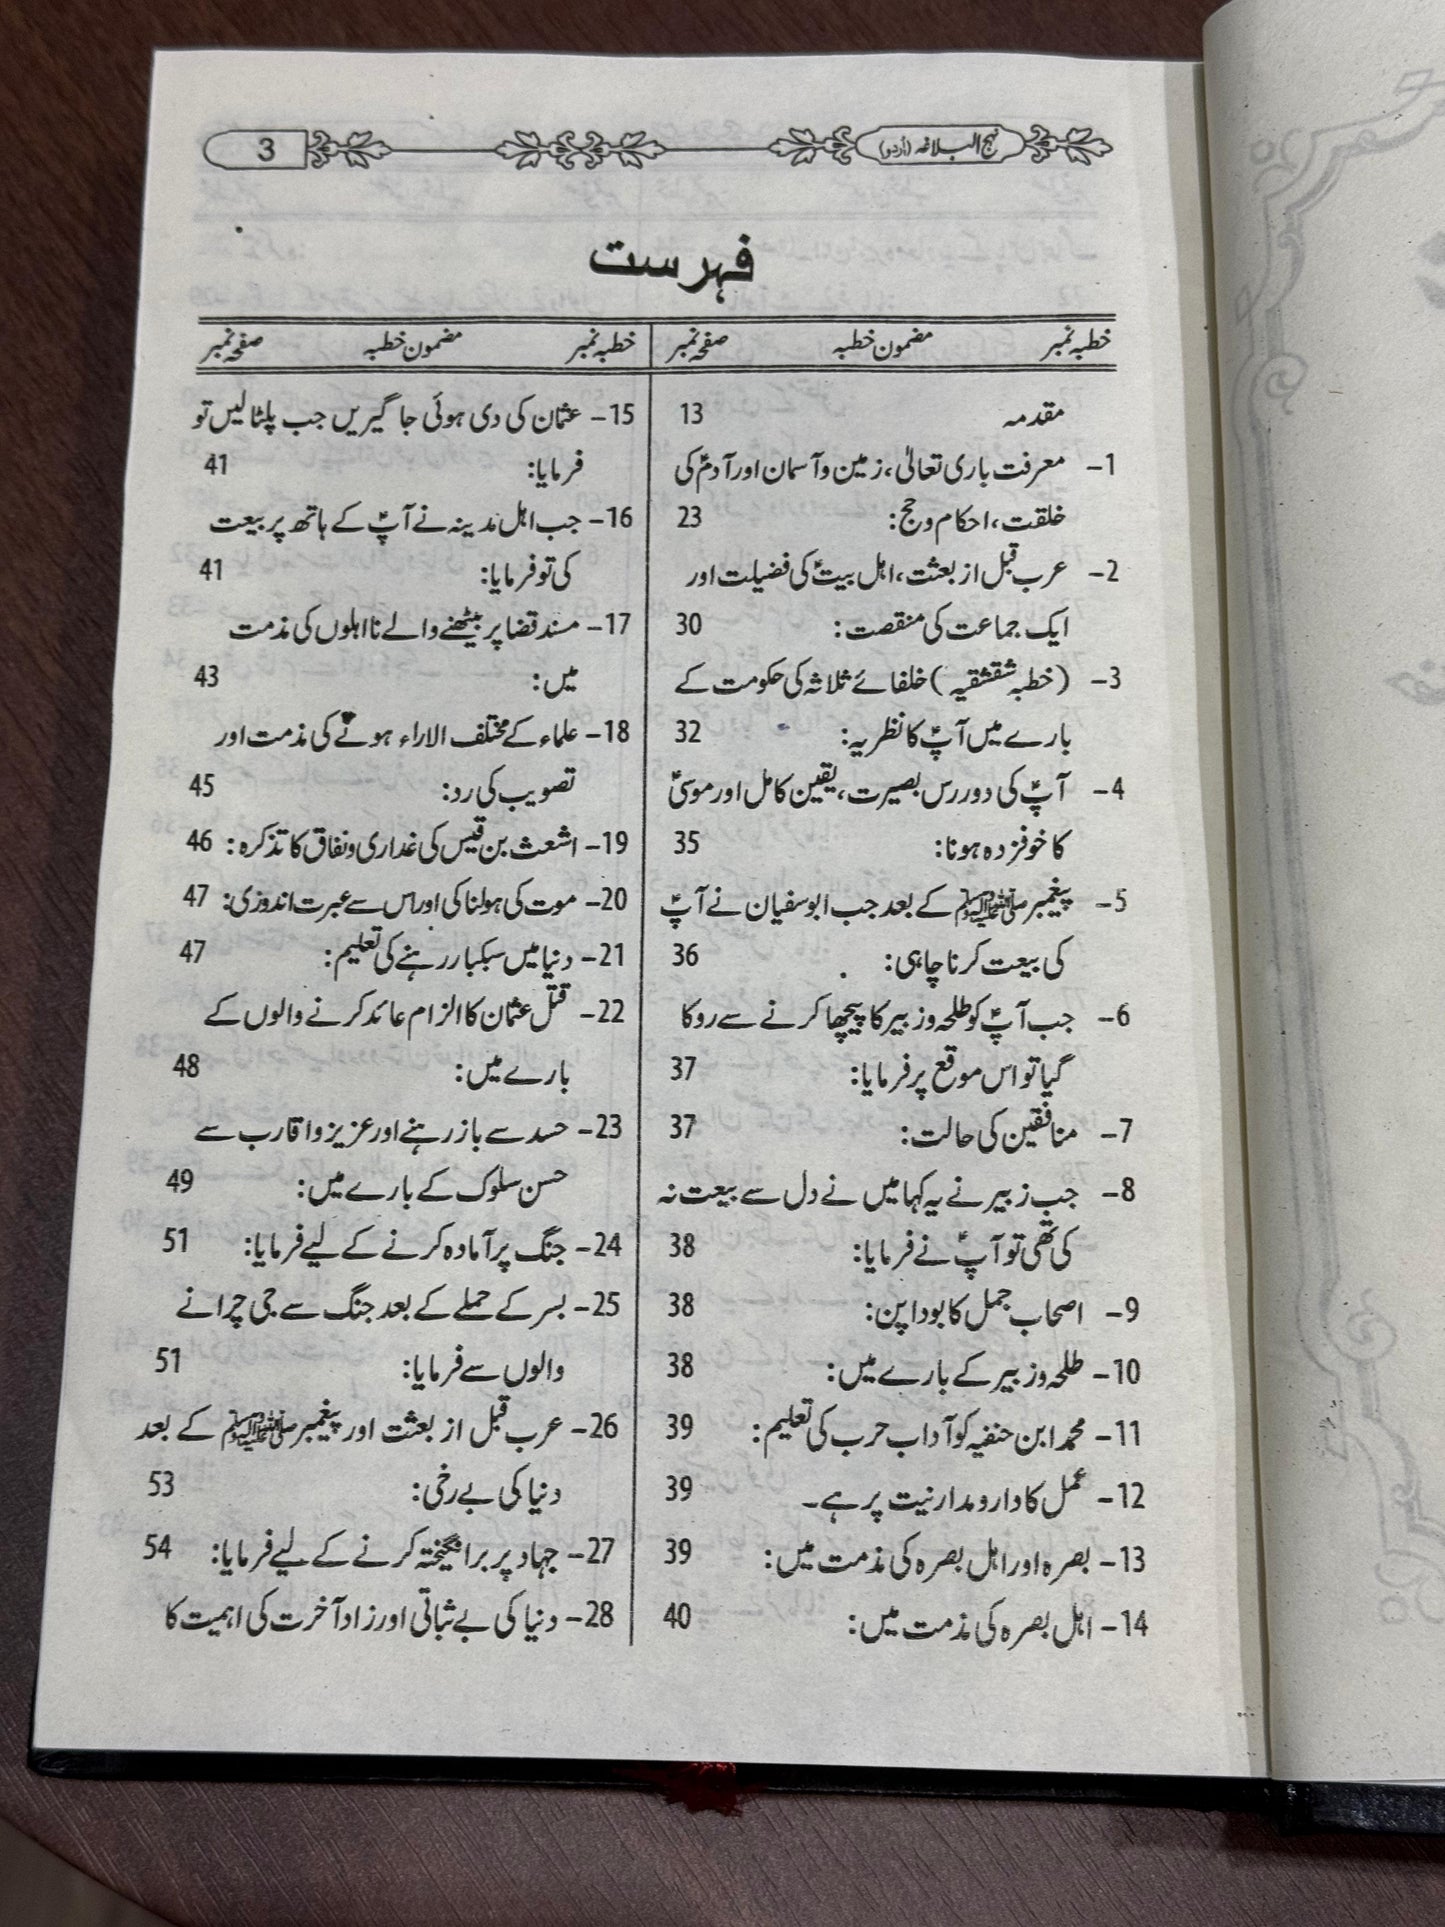 نہج البلاغہ (اُردو)
3
فہرست
خطبہ نمبر مضمون خطبہ صفحہ نمبر
مقدمہ 13
1- معرفت باری تعالیٰ، زمین و آسمان اور آدمؑ کی
خلقت، احکام و حج: 23
2- عرب قبل از بعثت، اہل بیتؑ کی فضیلت اور
ایک جماعت کی منقصت: 30
3- (خطبہ شقشقیہ) خلفائے ثلاثہ کی حکومت کے
بارے میں آپؑ کا نظریہ: 32
4- آپؑ کی دوررس بصیرت، یقین کامل اور موسیٰؑ
کا خوفزدہ ہونا: 35
5- پیغمبر ﷺ کے بعد جب ابوسفیان نے آپؑ
کی بیعت کرنا چاہی: 36
6- جب آپؑ کو طلحہ و زبیر کا پیچھا کرنے سے روکا
گیا تو اس موقع پر فرمایا: 37
7- منافقین کی حالت: 37
8- جب زبیر نے یہ کہا میں نے دل سے بیعت نہ
کی تھی تو آپؑ نے فرمایا: 38
9- اصحاب جمل کا بودا پن: 38
10- طلحہ و زبیر کے بارے میں: 38
11- محمد ابن حنفیہ کو آداب حرب کی تعلیم: 39
12- عمل کا دارومدار نیت پر ہے۔ 39
13- بصرہ اور اہل بصرہ کی مذمت میں: 39
14- اہل بصرہ کی مذمت میں: 40
خطبہ نمبر مضمون خطبہ صفحہ نمبر
15- عثمان کی دی ہوئی جاگیریں جب پلٹا لیں تو
فرمایا: 41
16- جب اہل مدینہ نے آپؑ کے ہاتھ پر بیعت
کی تو فرمایا: 41
17- مسند قضا پر بیٹھنے والے نااہلوں کی مذمت
میں: 43
18- علماء کے مختلف الاراء ہونے کی مذمت اور
تصویب کی رد: 45
19- اشعث بن قیس کی غداری و نفاق کا تذکرہ: 46
20- موت کی ہولناکی اور اس سے عبرت اندوزی: 47
21- دنیا میں سبکبار رہنے کی تعلیم: 47
22- قتل عثمان کا الزام عائد کرنے والوں کے
بارے میں: 48
23- حسد سے باز رہنے اور عزیز و اقارب سے
حسن سلوک کے بارے میں: 49
24- جنگ پر آمادہ کرنے کے لیے فرمایا: 51
25- بسر کے حملے کے بعد جنگ سے جی چرانے
والوں سے فرمایا: 51
26- عرب قبل از بعثت اور پیغمبر ﷺ کے بعد
دنیا کی بے رخی: 53
27- جہاد پر برانگیختہ کرنے کے لیے فرمایا: 54
28- دنیا کی بے ثباتی اور زاد آخرت کی اہمیت کا